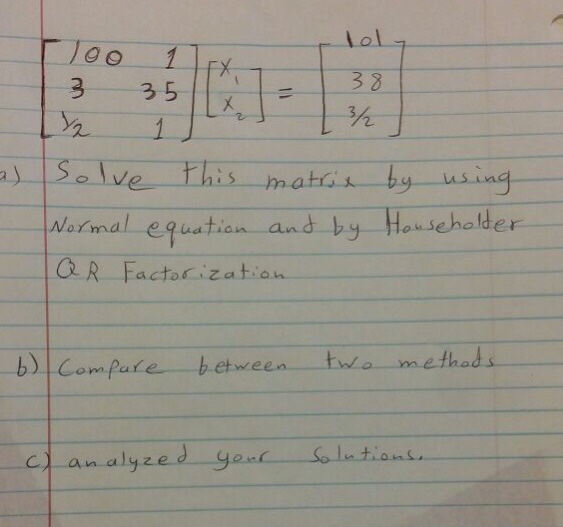 [100 1] [x₁] = [101]
[3 35] [x₂] [38]
[1/2 1] [3/2]
a) Solve this matrix by using
Normal equation and by Householder
QR Factorization
b) Compare between two methods
c) analyzed your Solutions.